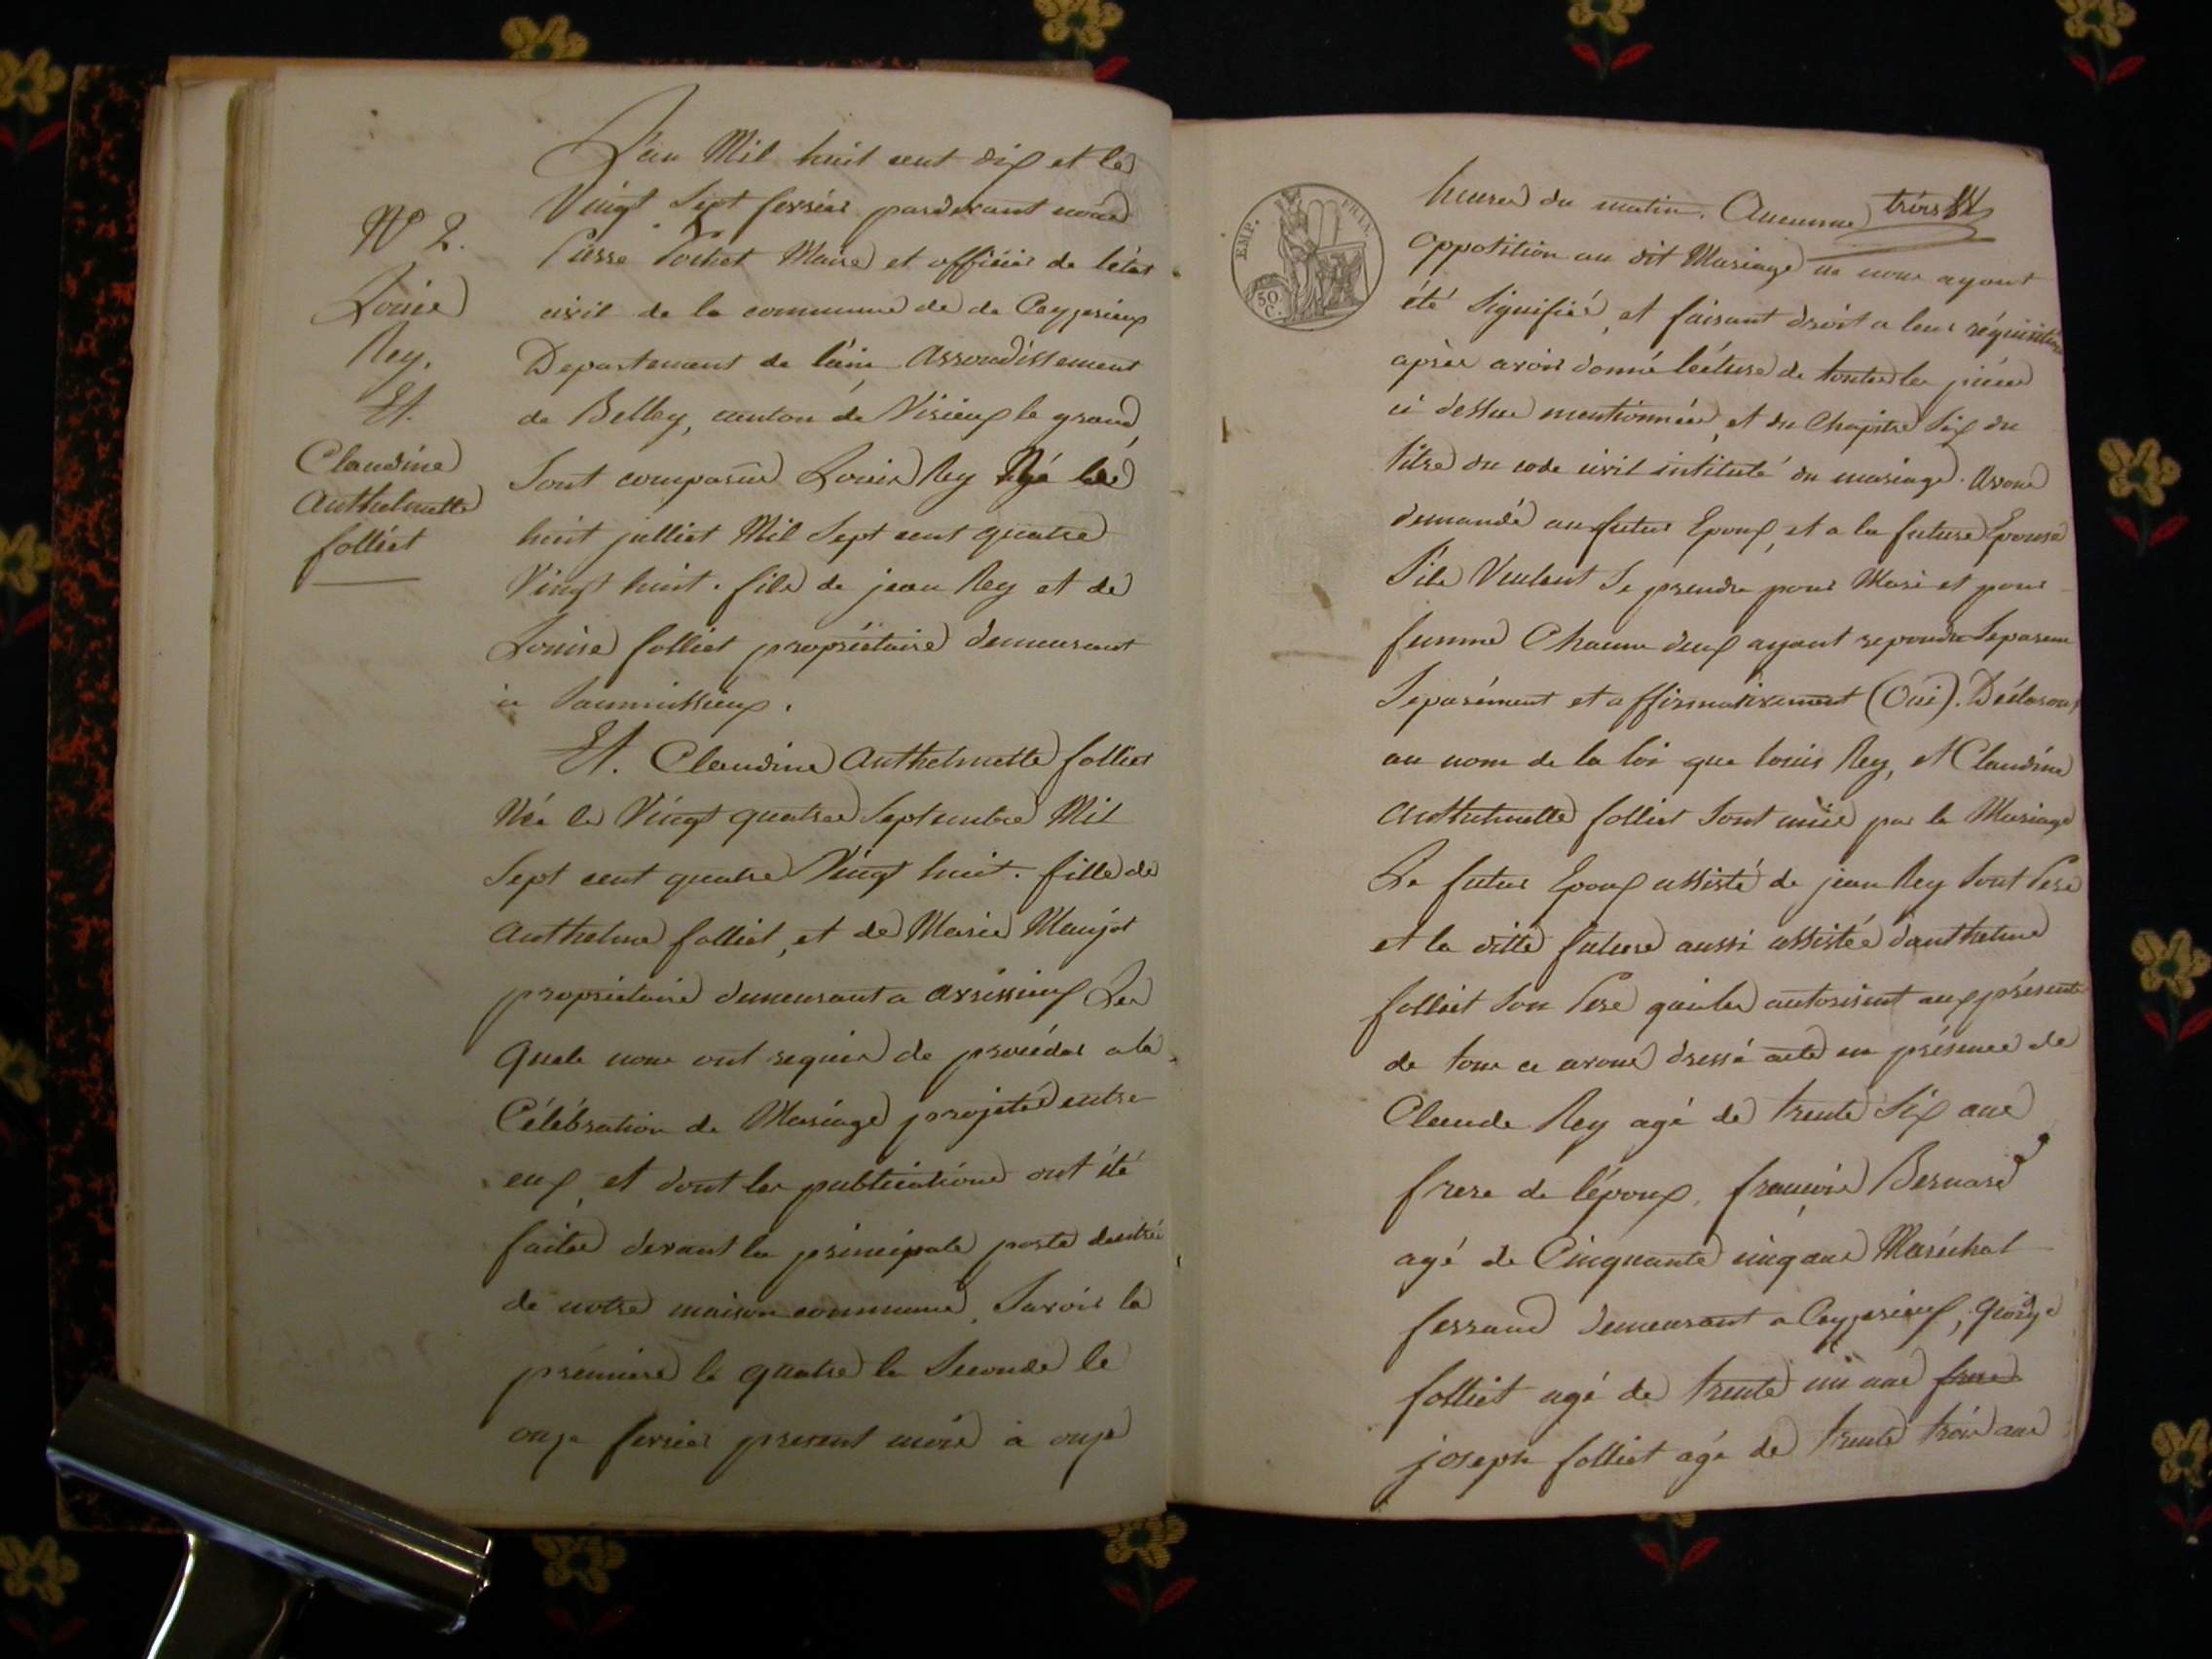 L'an Mil huit cent dix et le
Vingt Sept fevrier pardevant nous
Pierre Pochet Maire et officier de l'etat
civil de la commune de de Ceyzerieux
Departement de l'ain Arrondissement
de Belley, canton de Virieux le grand,
Sont comparus Louis Rey Né le
huit julliet Mil Sept cent quatre
Vingt huit. fils de jean Rey et de
Louise folliet propriétaire demeurant
a
Et. Claudine Anthelmette folliet
Née le Vingt quatre Septembre Mil
Sept cent quatre Vingt huit. fille de
Anthelme folliet, et de Marie Manjot
propriétaire demeurant a avrissieux Les
quels nous ont requis de procéder a la
Célébration de Mariage projeté entre
eux, et dont les publications ont été
faites devant la principale porte d'entrée
de notre maison commune, Savoir la
première le quatre la Seconde le
onze fevrier present mois à onze
N° 2.
Louis
Rey.
Et.
Claudine
Anthelmette
folliet
TIMP.
50
C.
trois
heures du matin. Aucunne
opposition au dit Mariage ne nous ayant
été Signifiée, et faisant droit a leur réquisition
après avoir donné lécture de toutes les pièces
ci dessus mentionnées, et du Chapitre Six du
titre du code civil intitulé du mariage. Avons
demandé au futur Epoux, et a la future Epouse
S'ils Veulent Se prendre pour Mari et pour
femme Chacun deux ayant repondu Séparem
Separément et affirmativement (Oui). Déclarons
au nom de la loi que louis Rey, et Claudine
Anthelmette folliet Sont unis par le Mariage
Le futur Epoux assisté de jean Rey Sont Pere
et la ditte future aussi assistée d'anthelme
folliet Son Pere qui les autorisent aux présente
de tous ce avons dressé acte en présence de
Claude Rey agé de trente Six ans
frere de l'époux, françois Bernard
agé de Cinquante cinq ans Maréchal
ferrand demeurant a Ceyzerieux, george
folliet agé de trente un ans frere
joseph folliet agé de trente trois ans